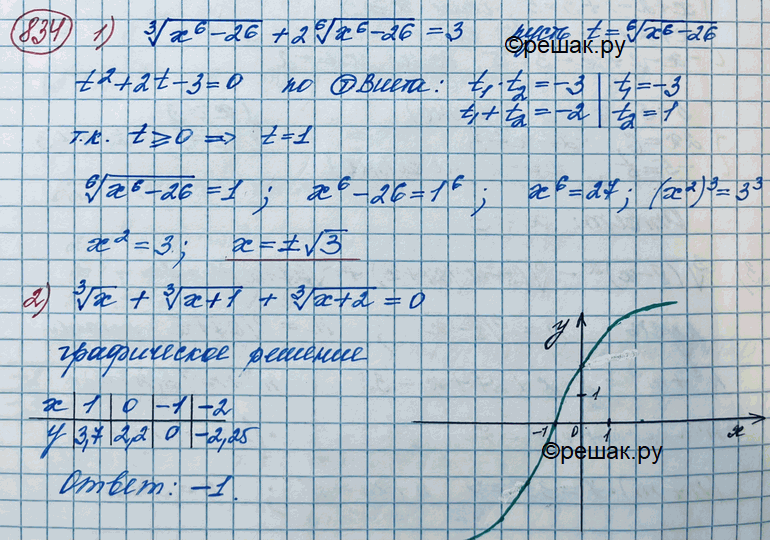 834 1) ∛(x⁶−26) + 2 ⁶√(x⁶−26) = 3 пусть t = ⁶√(x⁶−26)
©решак.ру
t² + 2t − 3 = 0 по Ⓣ Виета: t₁ · t₂ = −3 | t₁ = −3
t₁ + t₂ = −2 | t₂ = 1
т.к. t ⩾ 0 ⇒ t = 1
⁶√(x⁶−26) = 1 ; x⁶ − 26 = 1⁶ ; x⁶ = 27 ; (x²)³ = 3³
x² = 3 ; x = ±√3
2) ∛x + ∛(x+1) + ∛(x+2) = 0
графическое решение
x | 1 | 0 | −1 | −2
y | 3,7 | 2,2 | 0 | −2,25
Ответ: −1.
y
1
−1 0 1 x
©решак.ру